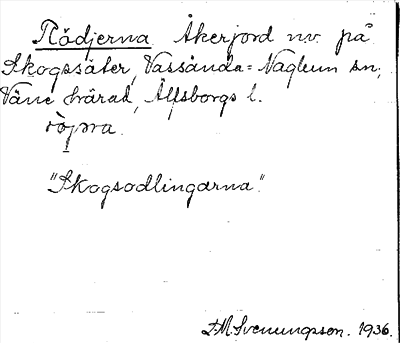 Rödjerna Åkerjord nv. på
Skogssäter, Vassända=Naglum sn,
Väne härad, Älfsborgs l.
"Skogsodlingarna."
F.M. Svenungsson. 1936.